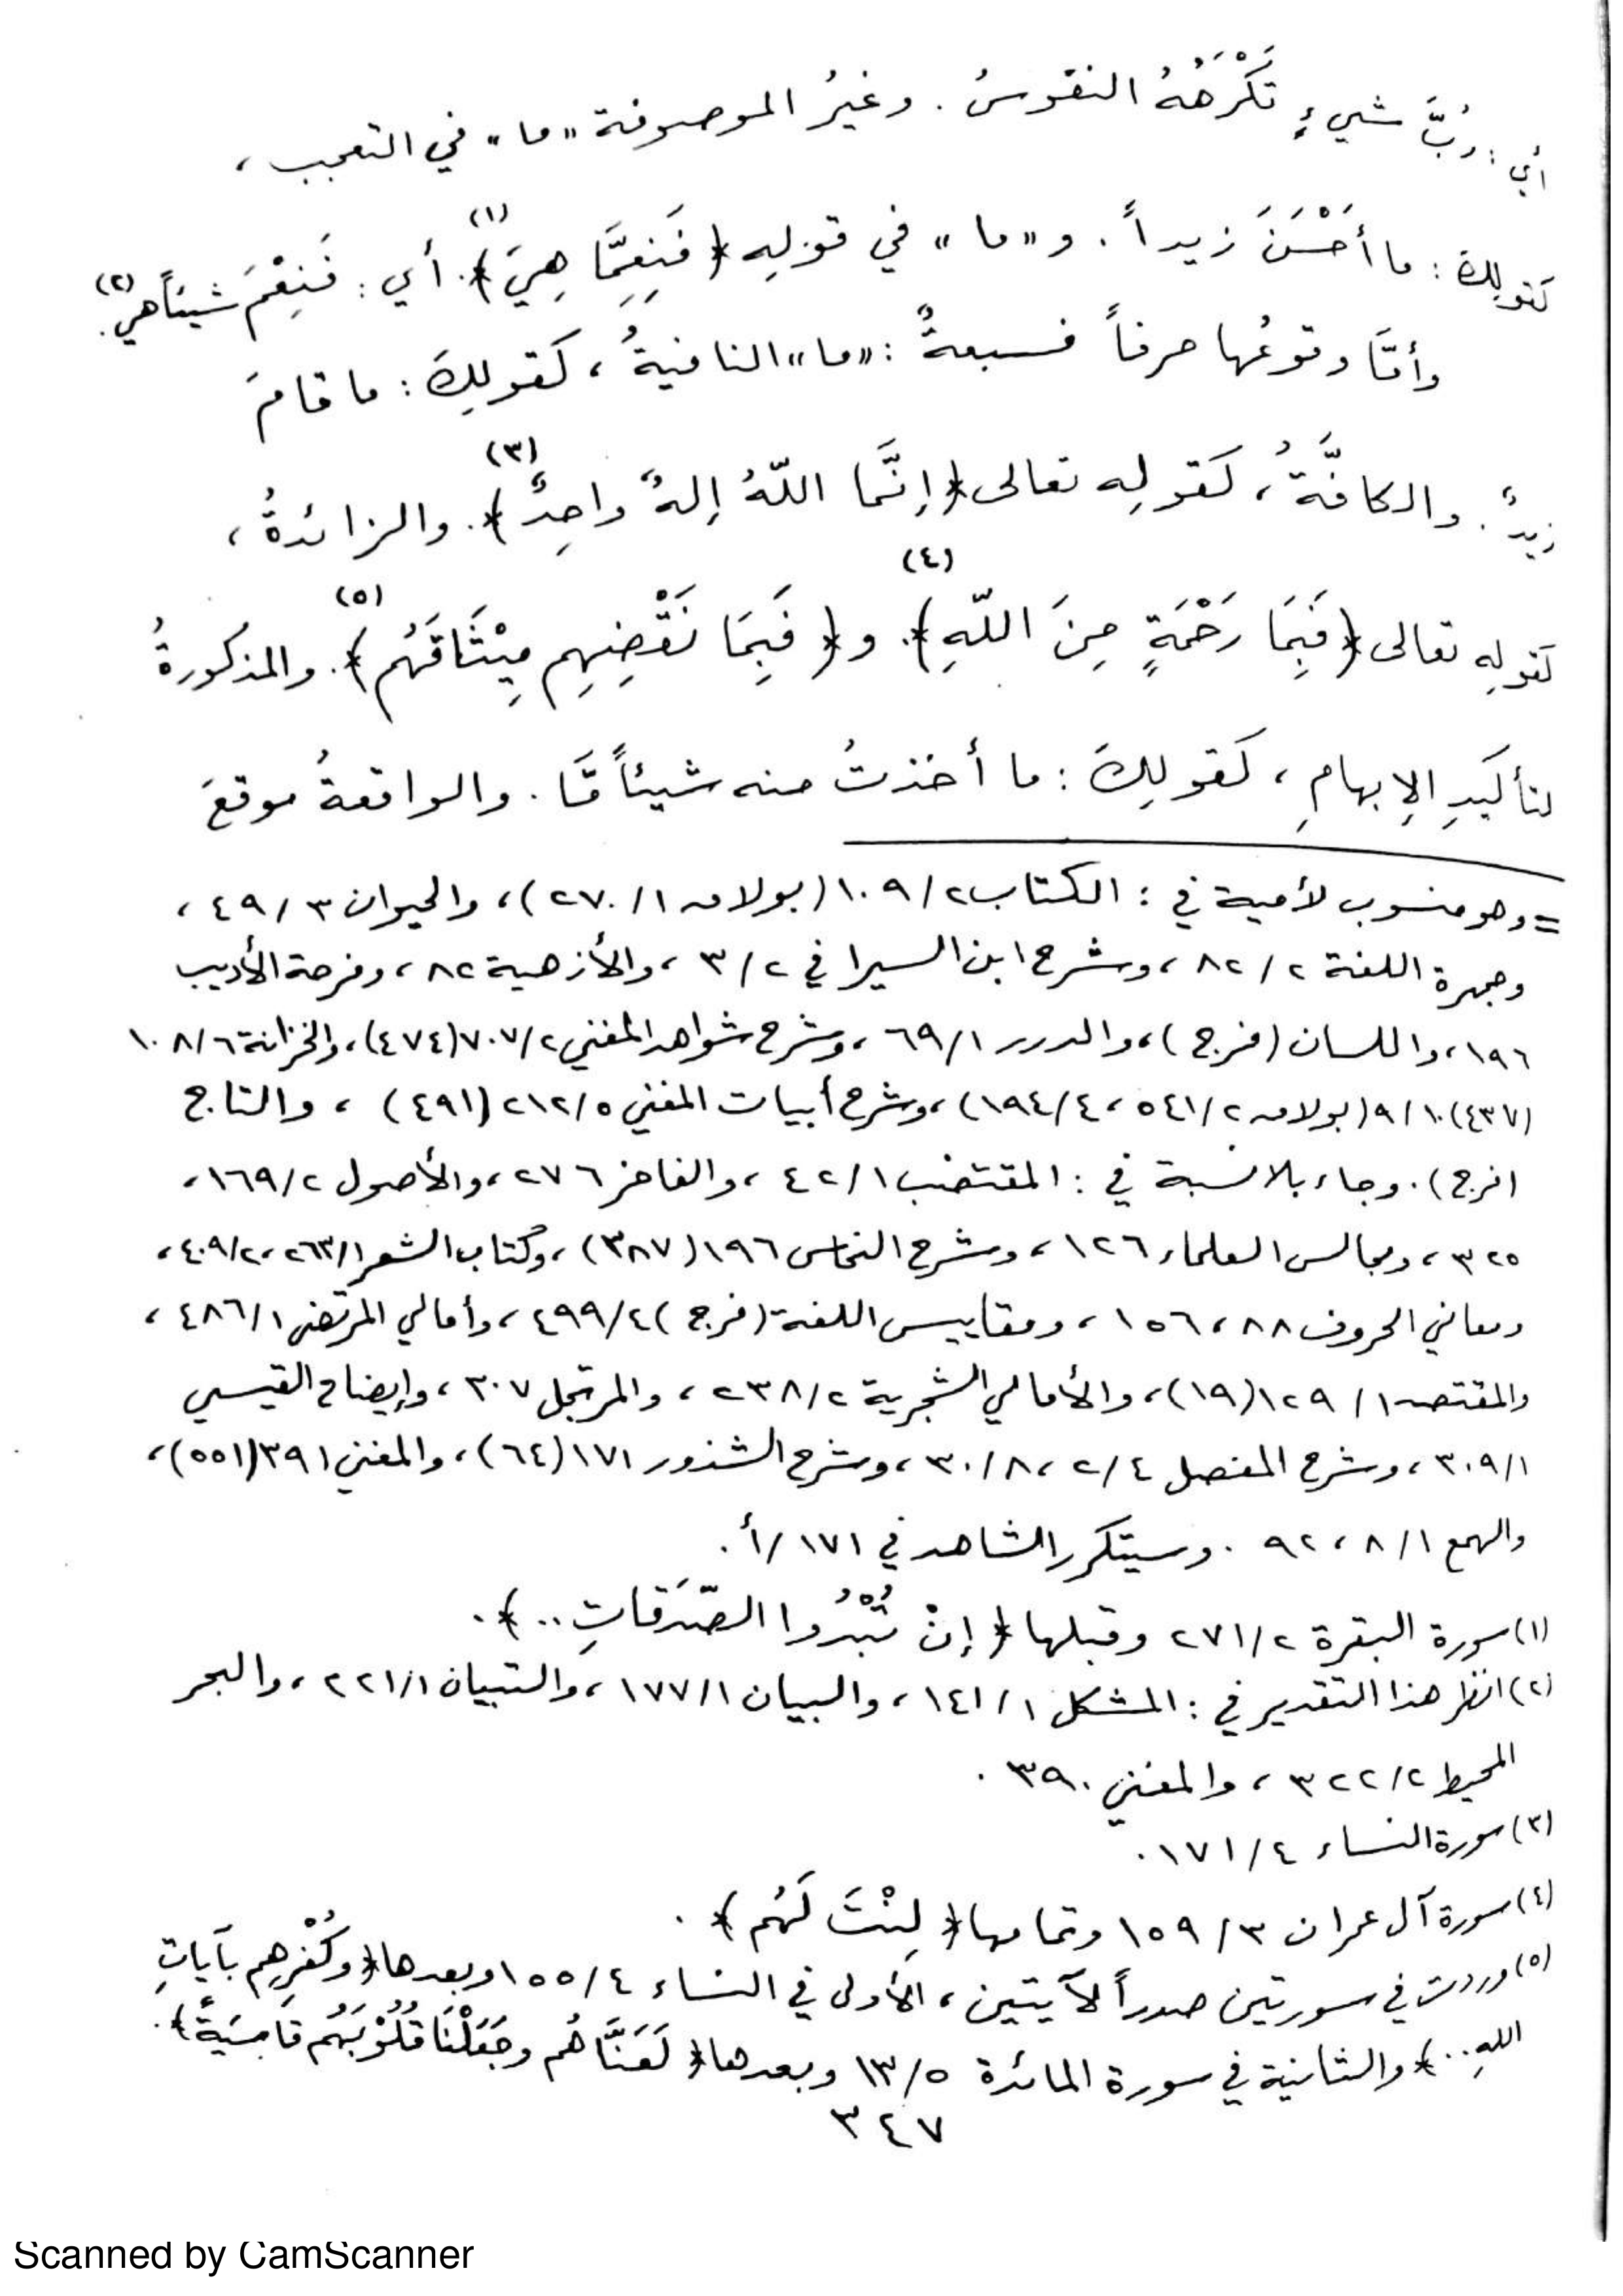 أي : رُبَّ شيءٍ تَكْرَهُهُ النفوسُ . وغيرُ الموصوفة «ما» في التعجب ،
كقولِكَ : ما أَحْسَنَ زيداً . و«ما» في قولِهِ ﴿فَنِعِمَّا هِيَ﴾(١). أي : فَنِعْمَ شيئاً هي(٢).
وأمَّا وقوعُها حرفاً فسبعةٌ : «ما» النافيةُ ، كَقولِكَ : ما قامَ
زيدٌ . والكافَّةُ ، كَقولِه تعالى ﴿إنَّما اللّهُ إلهٌ واحِدٌ﴾(٣). والزائدةُ ،
كقولِه تعالى ﴿فَبِمَا رَحْمَةٍ مِنَ اللّهِ﴾(٤). و﴿فَبِمَا نَقْضِهِم مِيْثَاقَهُم﴾(٥). والمذكورةُ
لتأكيدِ الإبهامِ ، كَقولِكَ : ما أخذتُ منه شيئاً مَّا . والواقعةُ موقعَ
= وهو منسوب لأمية في : الكتاب ١٠٩/٢ (بولاق ٢٧٠/١) ، والحيوان ٤٩/٣ ،
وجمهرة اللغة ٨٢/٢ ، وشرح ابن السيرافي ٣/٢ ، والأزهية ٨٢ ، وفرحة الأديب
١٩٦ ، واللسان (فرج) ، والدرر ٦٩/١ ، وشرح شواهد المغني ٧٠٧/٢ (٤٧٤) ، والخزانة ١٠٨/٦
(٤٣٧) ٩/١٠ (بولاق ٥٤١/٢ ، ١٩٤/٤) ، وشرح أبيات المغني ٢١٢/٥ (٤٩١) ، والتاج
(فرج) . وجاء بلا نسبة في : المقتضب ٤٢/١ ، والفاخر ٢٧٦ ، والأصول ١٦٩/٢ ،
٣٢٥ ، ومجالس العلماء ١٢٦ ، وشرح النحاس ١٩٦ (٣٨٧) ، وكتاب الشعر ٢٦٣/١ ، ٤٠٩/٢ ،
ومعاني الحروف ٨٨ ، ١٥٦ ، ومقاييس اللغة (فرج) ٤٩٩/٤ ، وأمالي المرتضى ٤٨٦/١ ،
والمقتصد ١٢٩/١ (١٩) ، والأمالي الشجرية ٢٣٨/٢ ، والمرتجل ٣٠٧ ، وإيضاح القيسي
٣٠٩/١ ، وشرح المفصل ٢/٤ ، ٣٠/٨ ، وشرح الشذور ١٧١ (٦٤) ، والمغني ٣٩١ (٥٥١) ،
والهمع ٨/١ ، ٩٢ . وسيتكرر الشاهد في ١٧١/أ .
(١) سورة البقرة ٢٧١/٢ وقبلها ﴿إنْ تُبْدُوا الصَّدَقاتِ ..﴾ .
(٢) انظر هذا التقدير في : المشكل ١٤١/١ ، والبيان ١٧٧/١ ، والتبيان ٢٢١/١ ، والبحر
المحيط ٣٢٢/٢ ، والمغني ٣٩٠ .
(٣) سورة النساء ١٧١/٤ .
(٤) سورة آل عمران ١٥٩/٣ وتمامها ﴿لِنْتَ لَهُم﴾ .
(٥) وردت في سورتين صدراً لآيتين ، الأولى في النساء ١٥٥/٤ وبعدها ﴿وكُفْرِهِم بآياتِ
اللهِ ..﴾ والثانية في سورة المائدة ١٣/٥ وبعدها ﴿لَعَنَّاهُم وجَعَلْنَا قُلُوْبَهُم قَاسِيَةً﴾ .
٣٤٧
Scanned by CamScanner